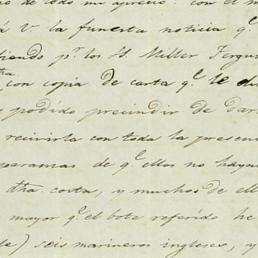 de todo mi aprecio. con el m
á V. la funesta noticia q.e
tiendo p.r los SS. Miller Fergus
con copia de carta q.e le di
podido precindir de dar
recivirla con toda la presen
paramas de q.e ellos no hayan
tra costa, y muchos de ell
mayor q.e el bote referido he
te) seis marineros ingleses, y